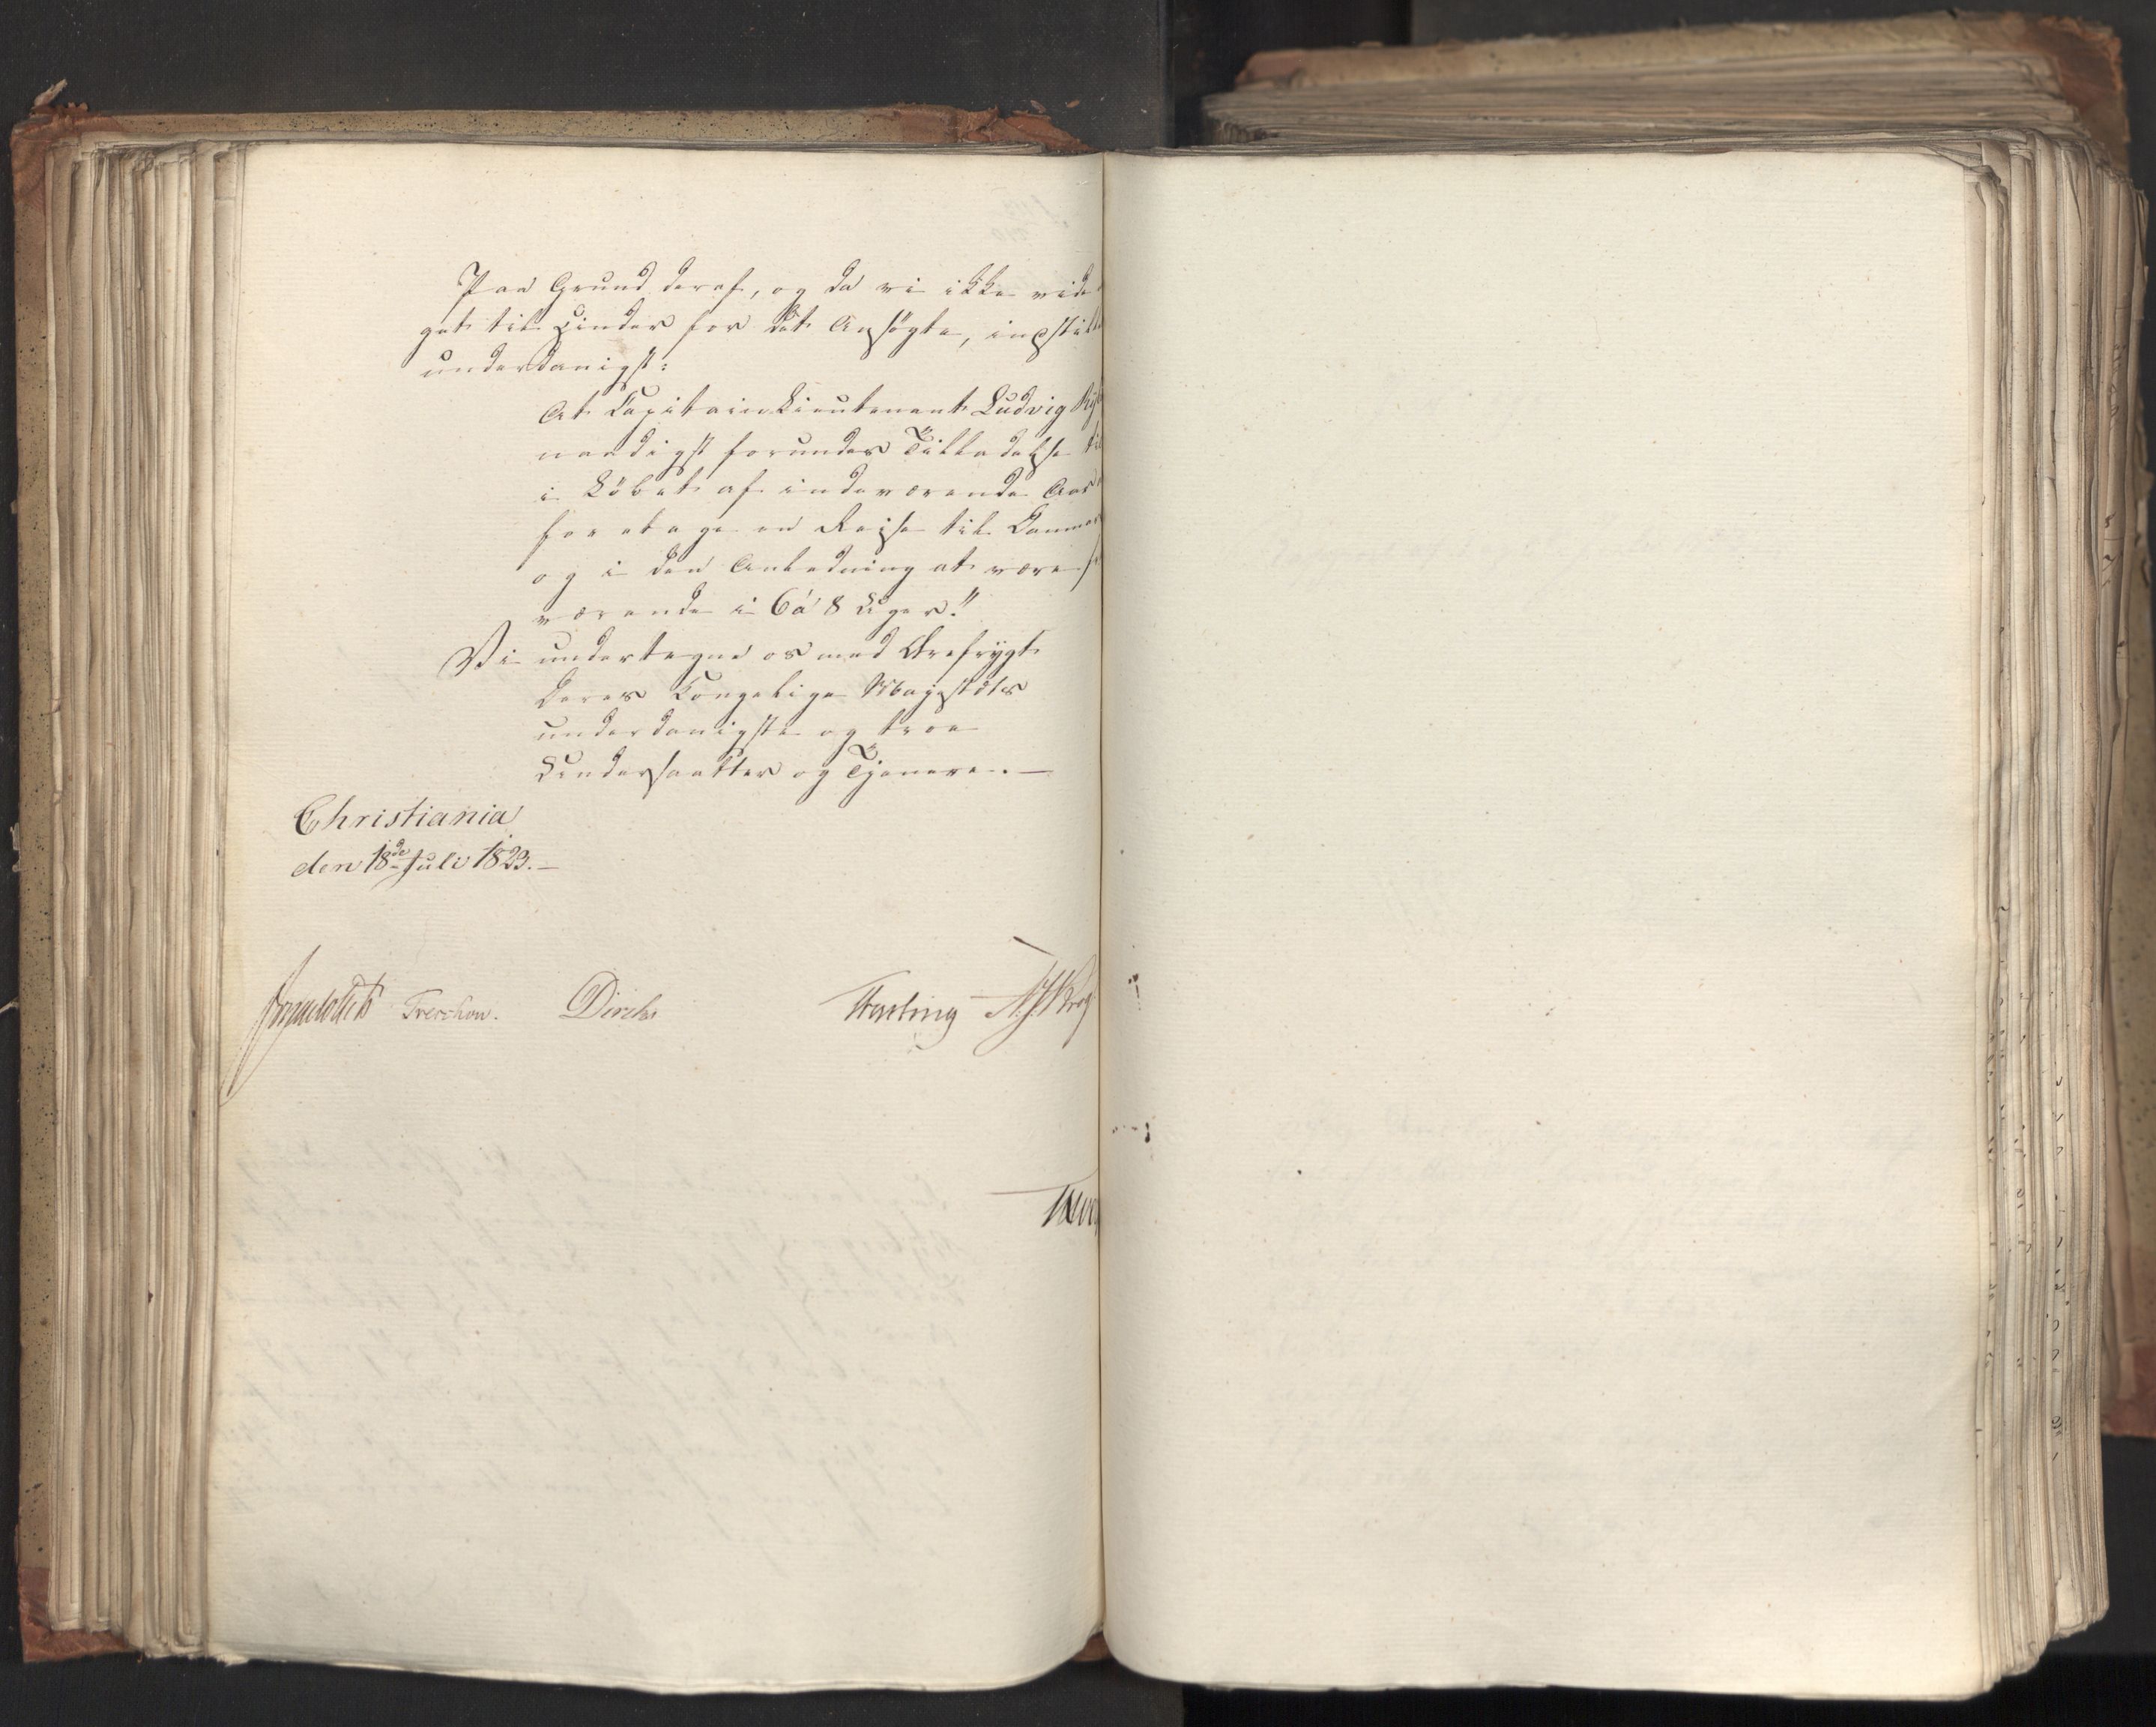 Paa Grund deraf, og da vi ikke vide
get til Hinder for det Ansøgte, indstille
underdanigst:
At Capitainlieutenant Ludvig
naadigst forundes Tilladelse til
i Løbet af indeværende Aar
foretage en Reise til Danmar
og i den Anledning at være fra
værende i 6 à 8 Uger."
Vi undertegne os med Ærefrygt
Deres Kongelige Majestæts
underdanigste og troe
Undersaatter og Tjenere. —
Christiania
den 18de Juli 1823. —
Treschow. Diriks